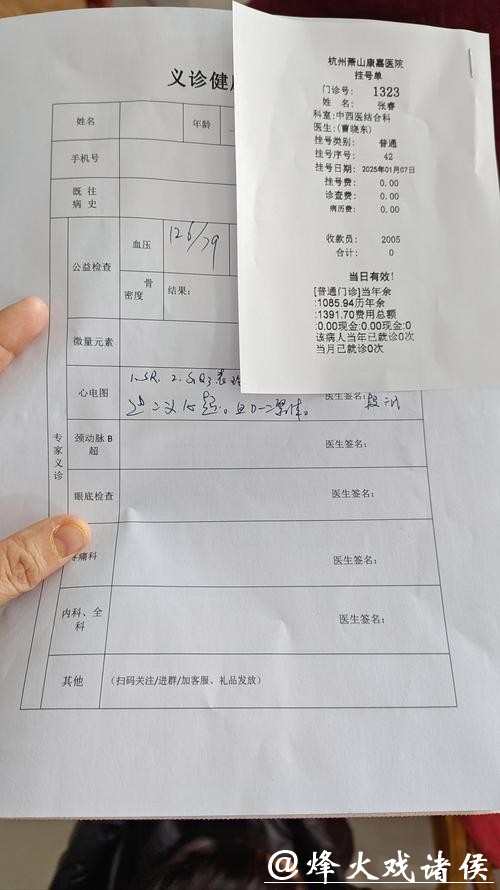 义诊健
杭州萧山康嘉医院
挂号单
门诊号: 1323
姓 名: 张睿
科室:中西医结合科
医生:(曹晓东)
挂号类别: 普通
挂号序号: 42
挂号日期: 2025年01月07日
挂号费: 0.00
诊查费: 0.00
病历费: 0.00
收款员: 2005
合计: 0
当日有效!
[普通门诊]当年余
:1085.94历年余
:1391.70费用总额
:0.00现金:0.00现金:0
该病人当年已就诊0次
当月已就诊0次
姓名 年龄
手机号
既 往
病 史
公益检查 血压 126/79
骨
密度 结果:
微量元素
专家义诊
心电图 1.SR. 2.
医生签名:
颈动脉 B
超 医生签名:
眼底检查 医生签名:
痛科 医生签名:
内科、全
科 医生签名:
其他 (扫码关注/进群/加客服、礼品发放)
@烽火戏诸侯